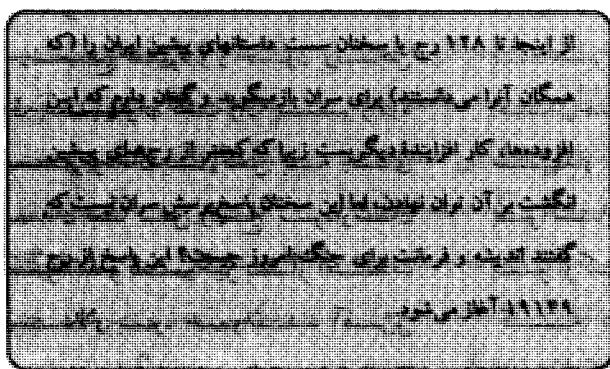 از اینجا تا ۱۲۸ رج با سخنان سست داستانهای پیشین ایران را (که
همگان آنرا می‌دانستند) برای سران بازمیگوید. و گمان دارم که این
افزوده‌ها، کار افزاینده دیگریست زیرا که کمتر از رج‌های پیشین
انگشت بر آن توان نهادن، اما این سخنان پاسخ پرسش سران نیست که
گفتند اندیشه و فرمانت برای جنگ امروز چیست؟ این پاسخ از رج
۱۹۱۳۹ آغاز می‌شود.